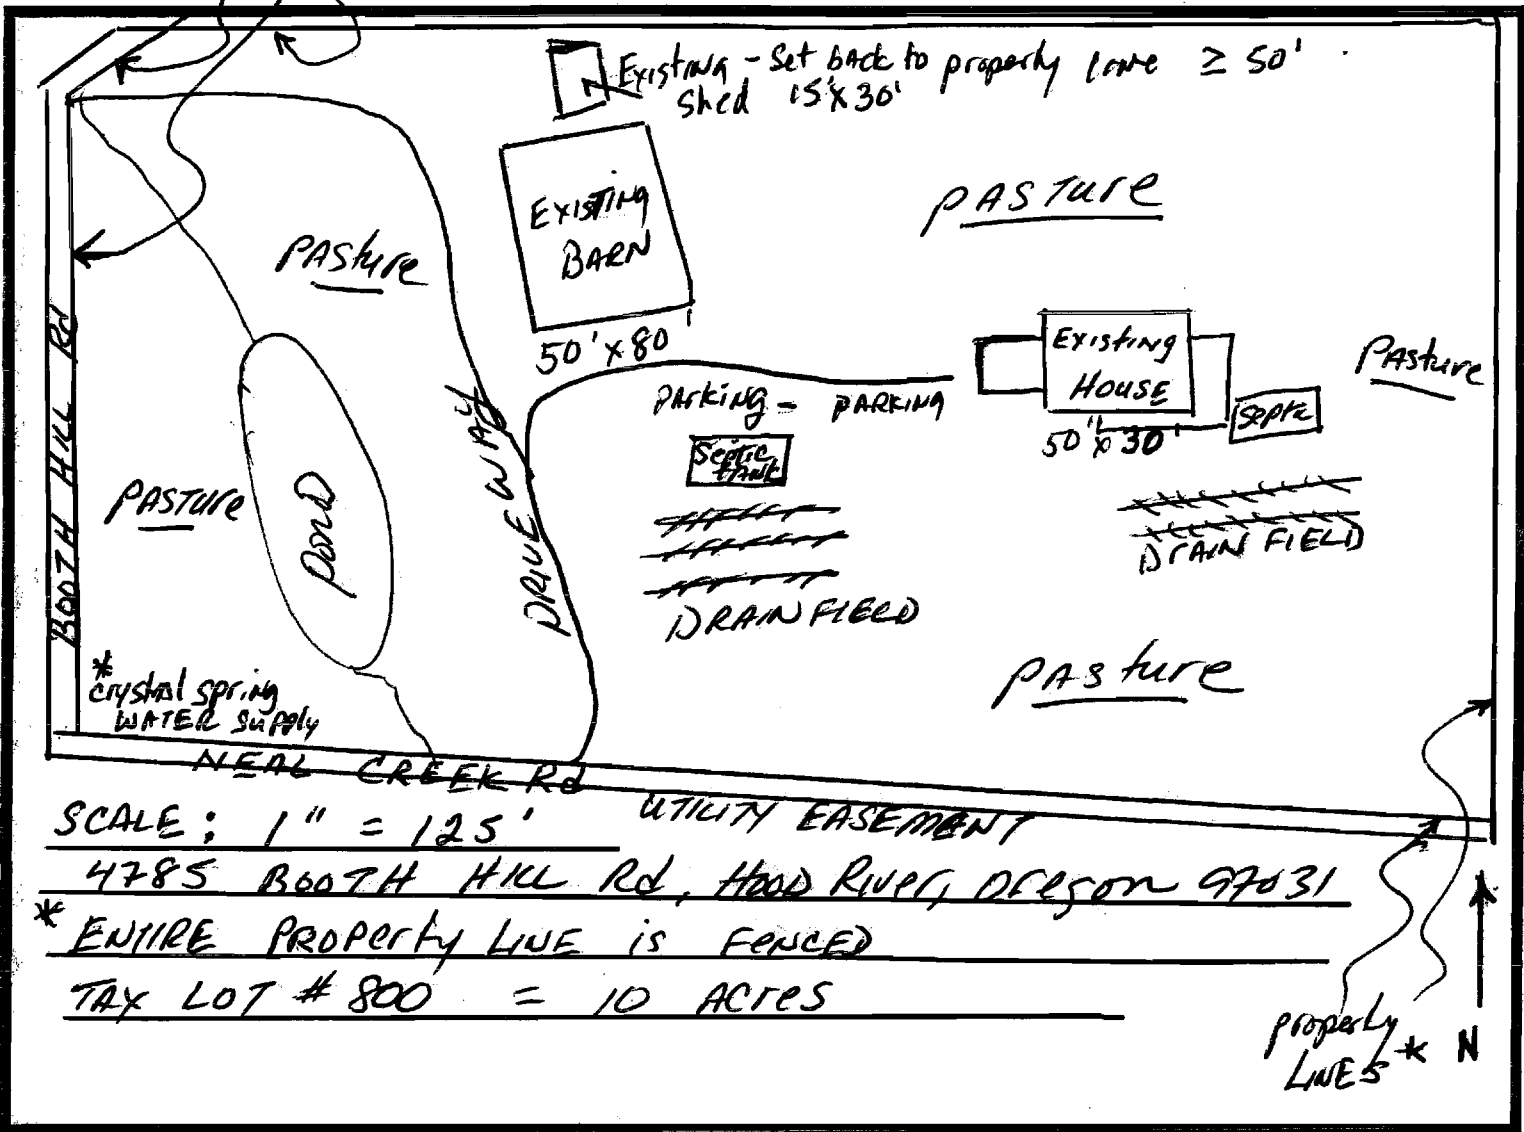 Existing - Set back to property line ≥ 50'
Shed 15'x30'
PASTURE
EXISTING
BARN
50'x80'
PASture
Existing
HOUSE
50'x30'
Pasture
PARKING - PARKING
Septic
Septic
tANK
BOOTH HILL Rd
DRIVEWAY
PASTURE
PonD
DRAIN FIELD
DRAINFIELD
PASture
*
crystal spring
WATER Supply
NEAL CREEK Rd
UTILITY EASEMENT
SCALE: 1" = 125'
4785 BOOTH HILL Rd, HOOD River, Oregon 97031
* ENTIRE PROPerty LINE is FENCED
TAX LOT # 800 = 10 ACres
property
LINES *
N